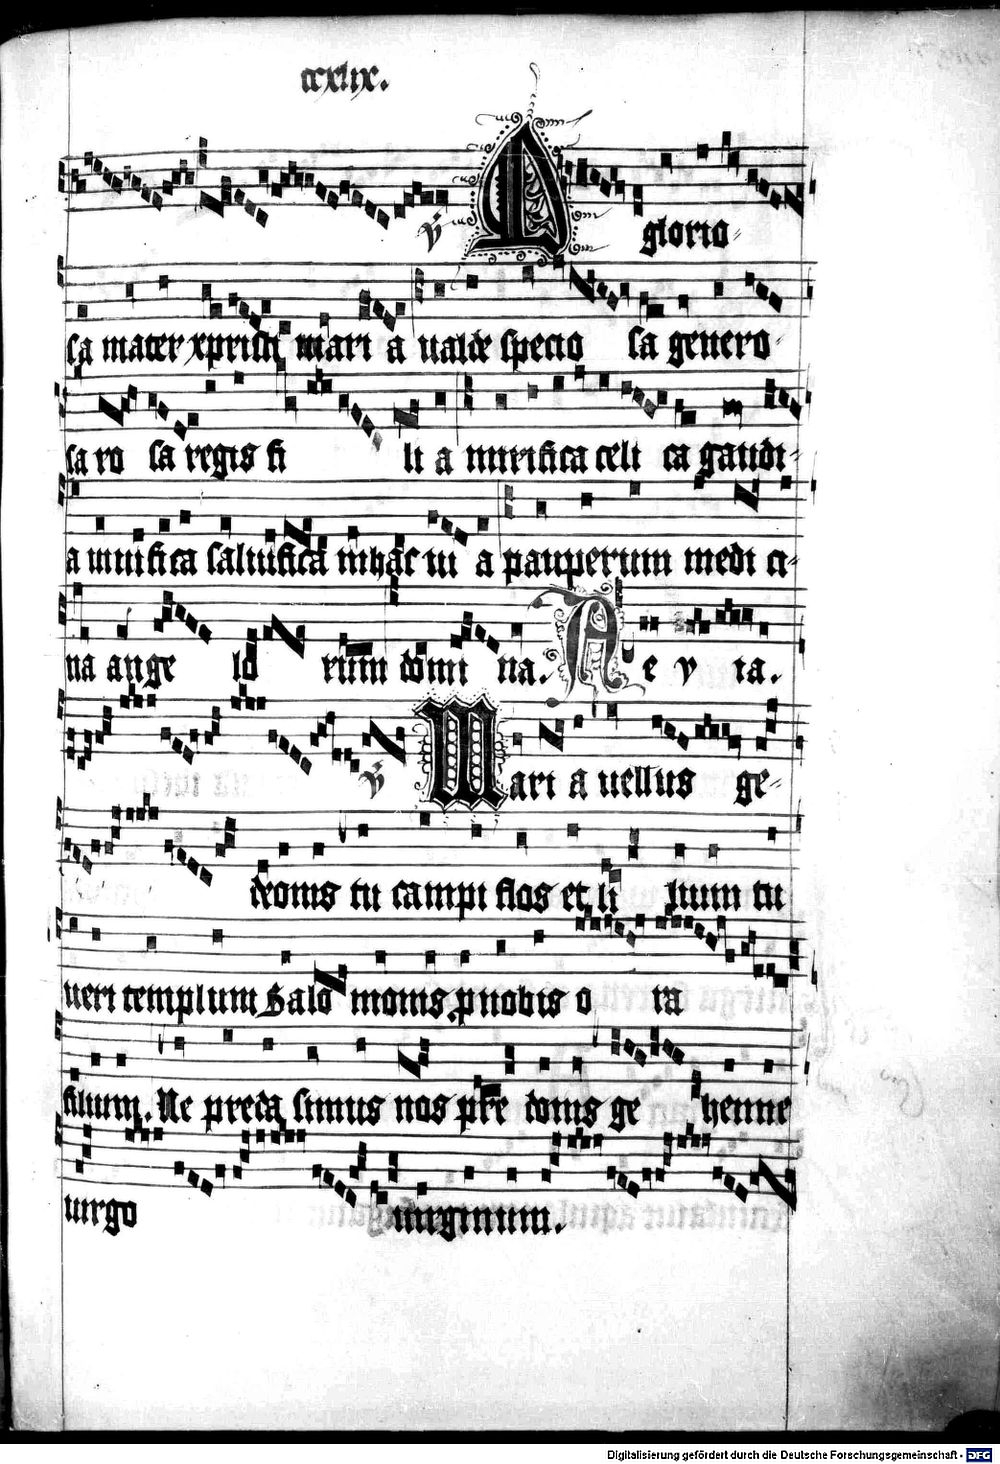 ccxlix.
℣ O glorio-
sa mater xpristi mari a ualde specio sa genero-
sa ro sa regis fi li a mirifica celi ca gaudi-
a munifica saluifica inhac ui a pauperum medi ci-
na ange lo rum domi na. A e v ia.
℣ Mari a uellus ge-
deonis tu campi flos et li lium tu
ueri templum Salo monis pnobis o ra
filium. Ne preda simus nos pre donis ge henne
uirgo uirginum.
Digitalisierung gefördert durch die Deutsche Forschungsgemeinschaft - DFG